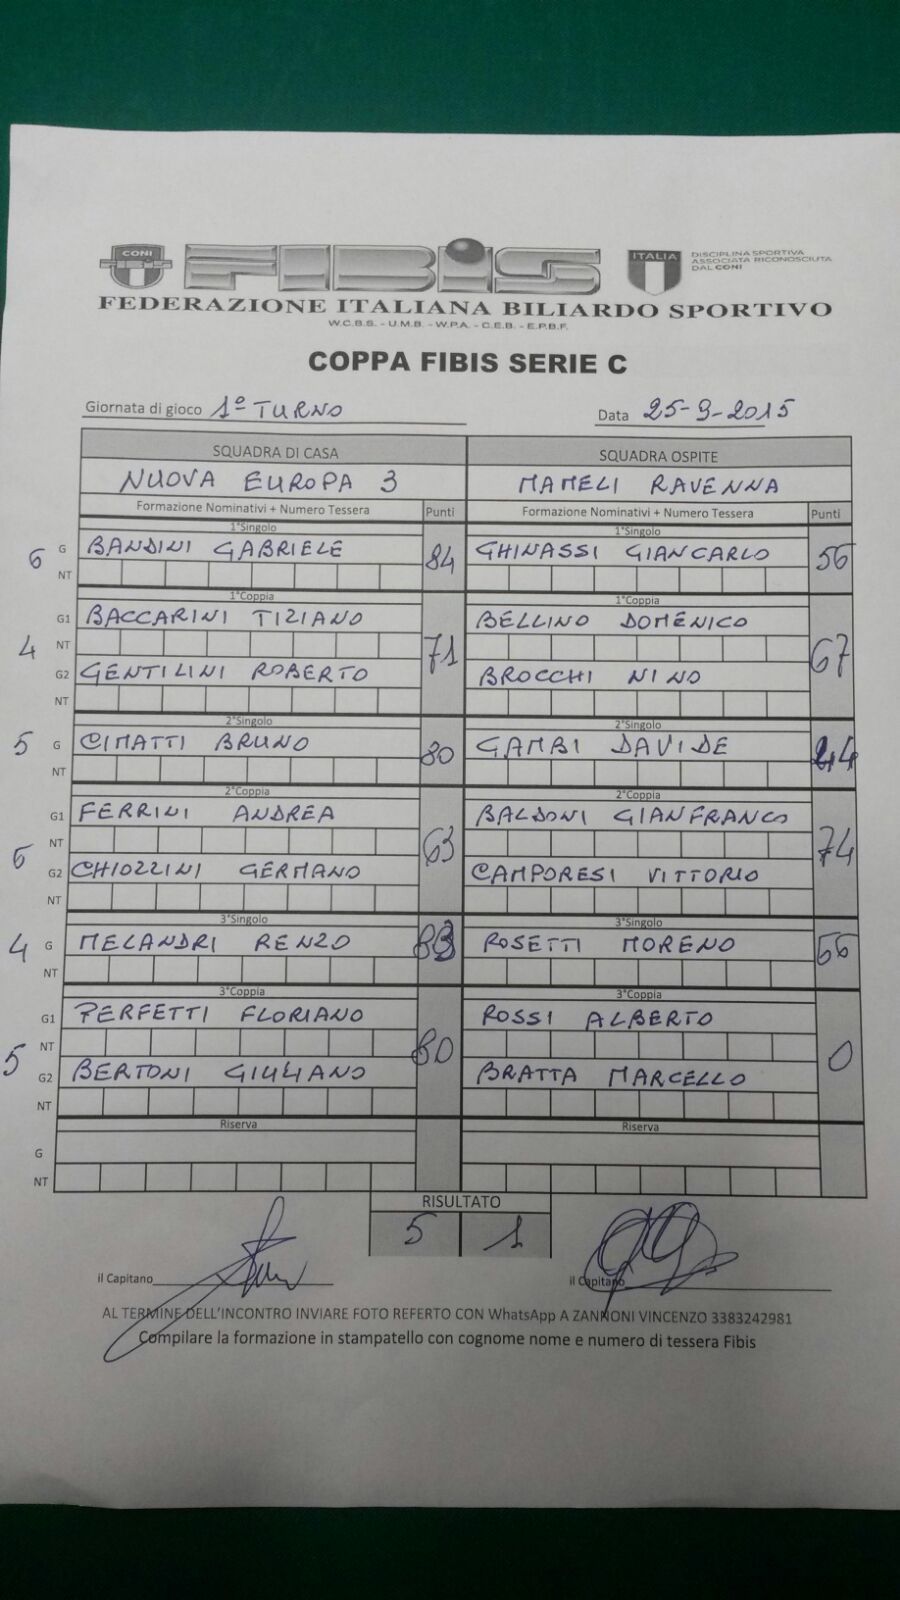 CONI
FIBIS
FIBiS
ITALIA
DISCIPLINA SPORTIVA
ASSOCIATA RICONOSCIUTA
DAL CONI
FEDERAZIONE ITALIANA BILIARDO SPORTIVO
W.C.B.S. - U.M.B. - W.P.A. - C.E.B. - E.P.B.F.
COPPA FIBIS SERIE C
Giornata di gioco 1º TURNO Data 25-9-2015
SQUADRA DI CASA SQUADRA OSPITE
NUOVA EUROPA 3 MAMELI RAVENNA
Formazione Nominativi + Numero Tessera Punti Formazione Nominativi + Numero Tessera Punti
1°Singolo 1°Singolo
6 G BANDINI GABRIELE 84 GHINASSI GIANCARLO 56
NT
1°Coppia 1°Coppia
G1 BACCARINI TIZIANO BELLINO DOMENICO
4 NT 71 67
G2 GENTILINI ROBERTO BROCCHI NINO
NT
2°Singolo 2°Singolo
5 G CIMATTI BRUNO 80 GAMBI DAVIDE 44
NT
2°Coppia 2°Coppia
G1 FERRINI ANDREA BALDONI GIANFRANCO
6 NT 63 74
G2 CHIOZZINI GERMANO CAMPORESI VITTORIO
NT
3°Singolo 3°Singolo
4 G MELANDRI RENZO ROSETTI MORENO
NT
3°Coppia 3°Coppia
G1 PERFETTI FLORIANO ROSSI ALBERTO
5 NT 80 0
G2 BERTONI GIULIANO BRATTA MARCELLO
NT
Riserva Riserva
G
NT
RISULTATO
5 1
il Capitano il Capitano
AL TERMINE DELL'INCONTRO INVIARE FOTO REFERTO CON WhatsApp A ZANNONI VINCENZO 3383242981
Compilare la formazione in stampatello con cognome nome e numero di tessera Fibis